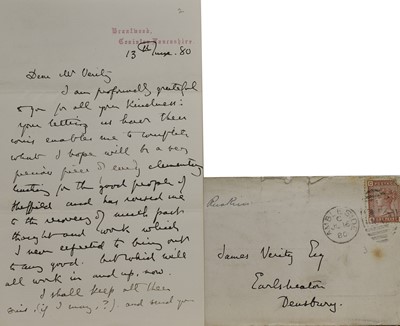 2
Brantwood,
Coniston, Lancashire
13th June. 80
Dear Mr Verity
I am profoundly grateful
to you for all your kindness:
your letting us have these
coins enables me to complete
what I hope will be a very
precious piece of early elementary
teaching for the good people of
Sheffield and has roused me
to the recovery of much past
thought and work which
I never expected to bring out
to any good. but which will
all work in and up, now.
I shall keep all these
coins (if I may,?) and send you
Ruskin
AMBLESIDE
C
80
James Verity Esq
Earlsheaton
Dewsbury.